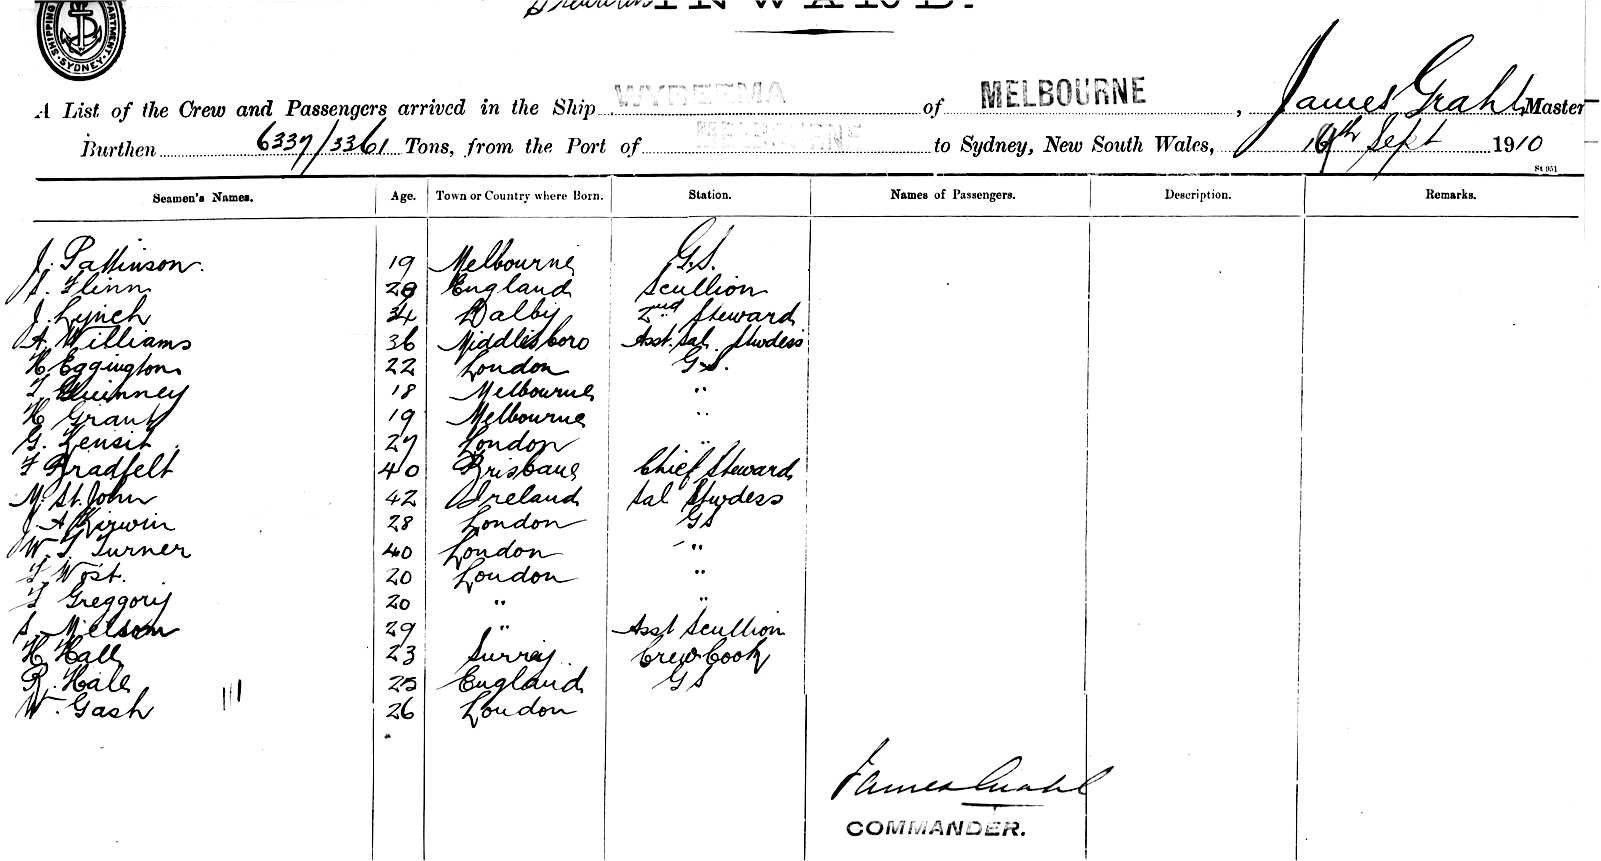 INWARD.
SHIPPING DEPARTMENT SYDNEY
A List of the Crew and Passengers arrived in the Ship WYREEMA of MELBOURNE, James Grahl, Master
Burthen 6337/3361 Tons, from the Port of MELBOURNE to Sydney, New South Wales, Sept 1910
St 951
Seamen's Names. Age. Town or Country where Born. Station. Names of Passengers. Description. Remarks.
J. Pattinson. 19 Melbourne G.S.
S. Flinn 28 England Scullion
J. Lynch 34 Dalby 2nd Steward
A. Williams 36 Middlesboro Asst. Sal. Stwdess
H. Eggington 22 London G.S.
T. Guinney 18 Melbourne "
H. Grant 19 Melbourne "
G. Kensit 27 London "
F Bradfelt 40 Brisbane Chief Steward
M. St. John 42 Ireland Sal Stwdess
J. A. Kirwin 28 London GS
W. T. Turner 40 London "
T. West. 20 London "
T Greggory 20 " "
S. Nelson 29 " Asst Scullion
H Hall 23 Surrey Crew Cook
R. Hale 25 England GS
W. Gash 26 London
James Grahl
COMMANDER.